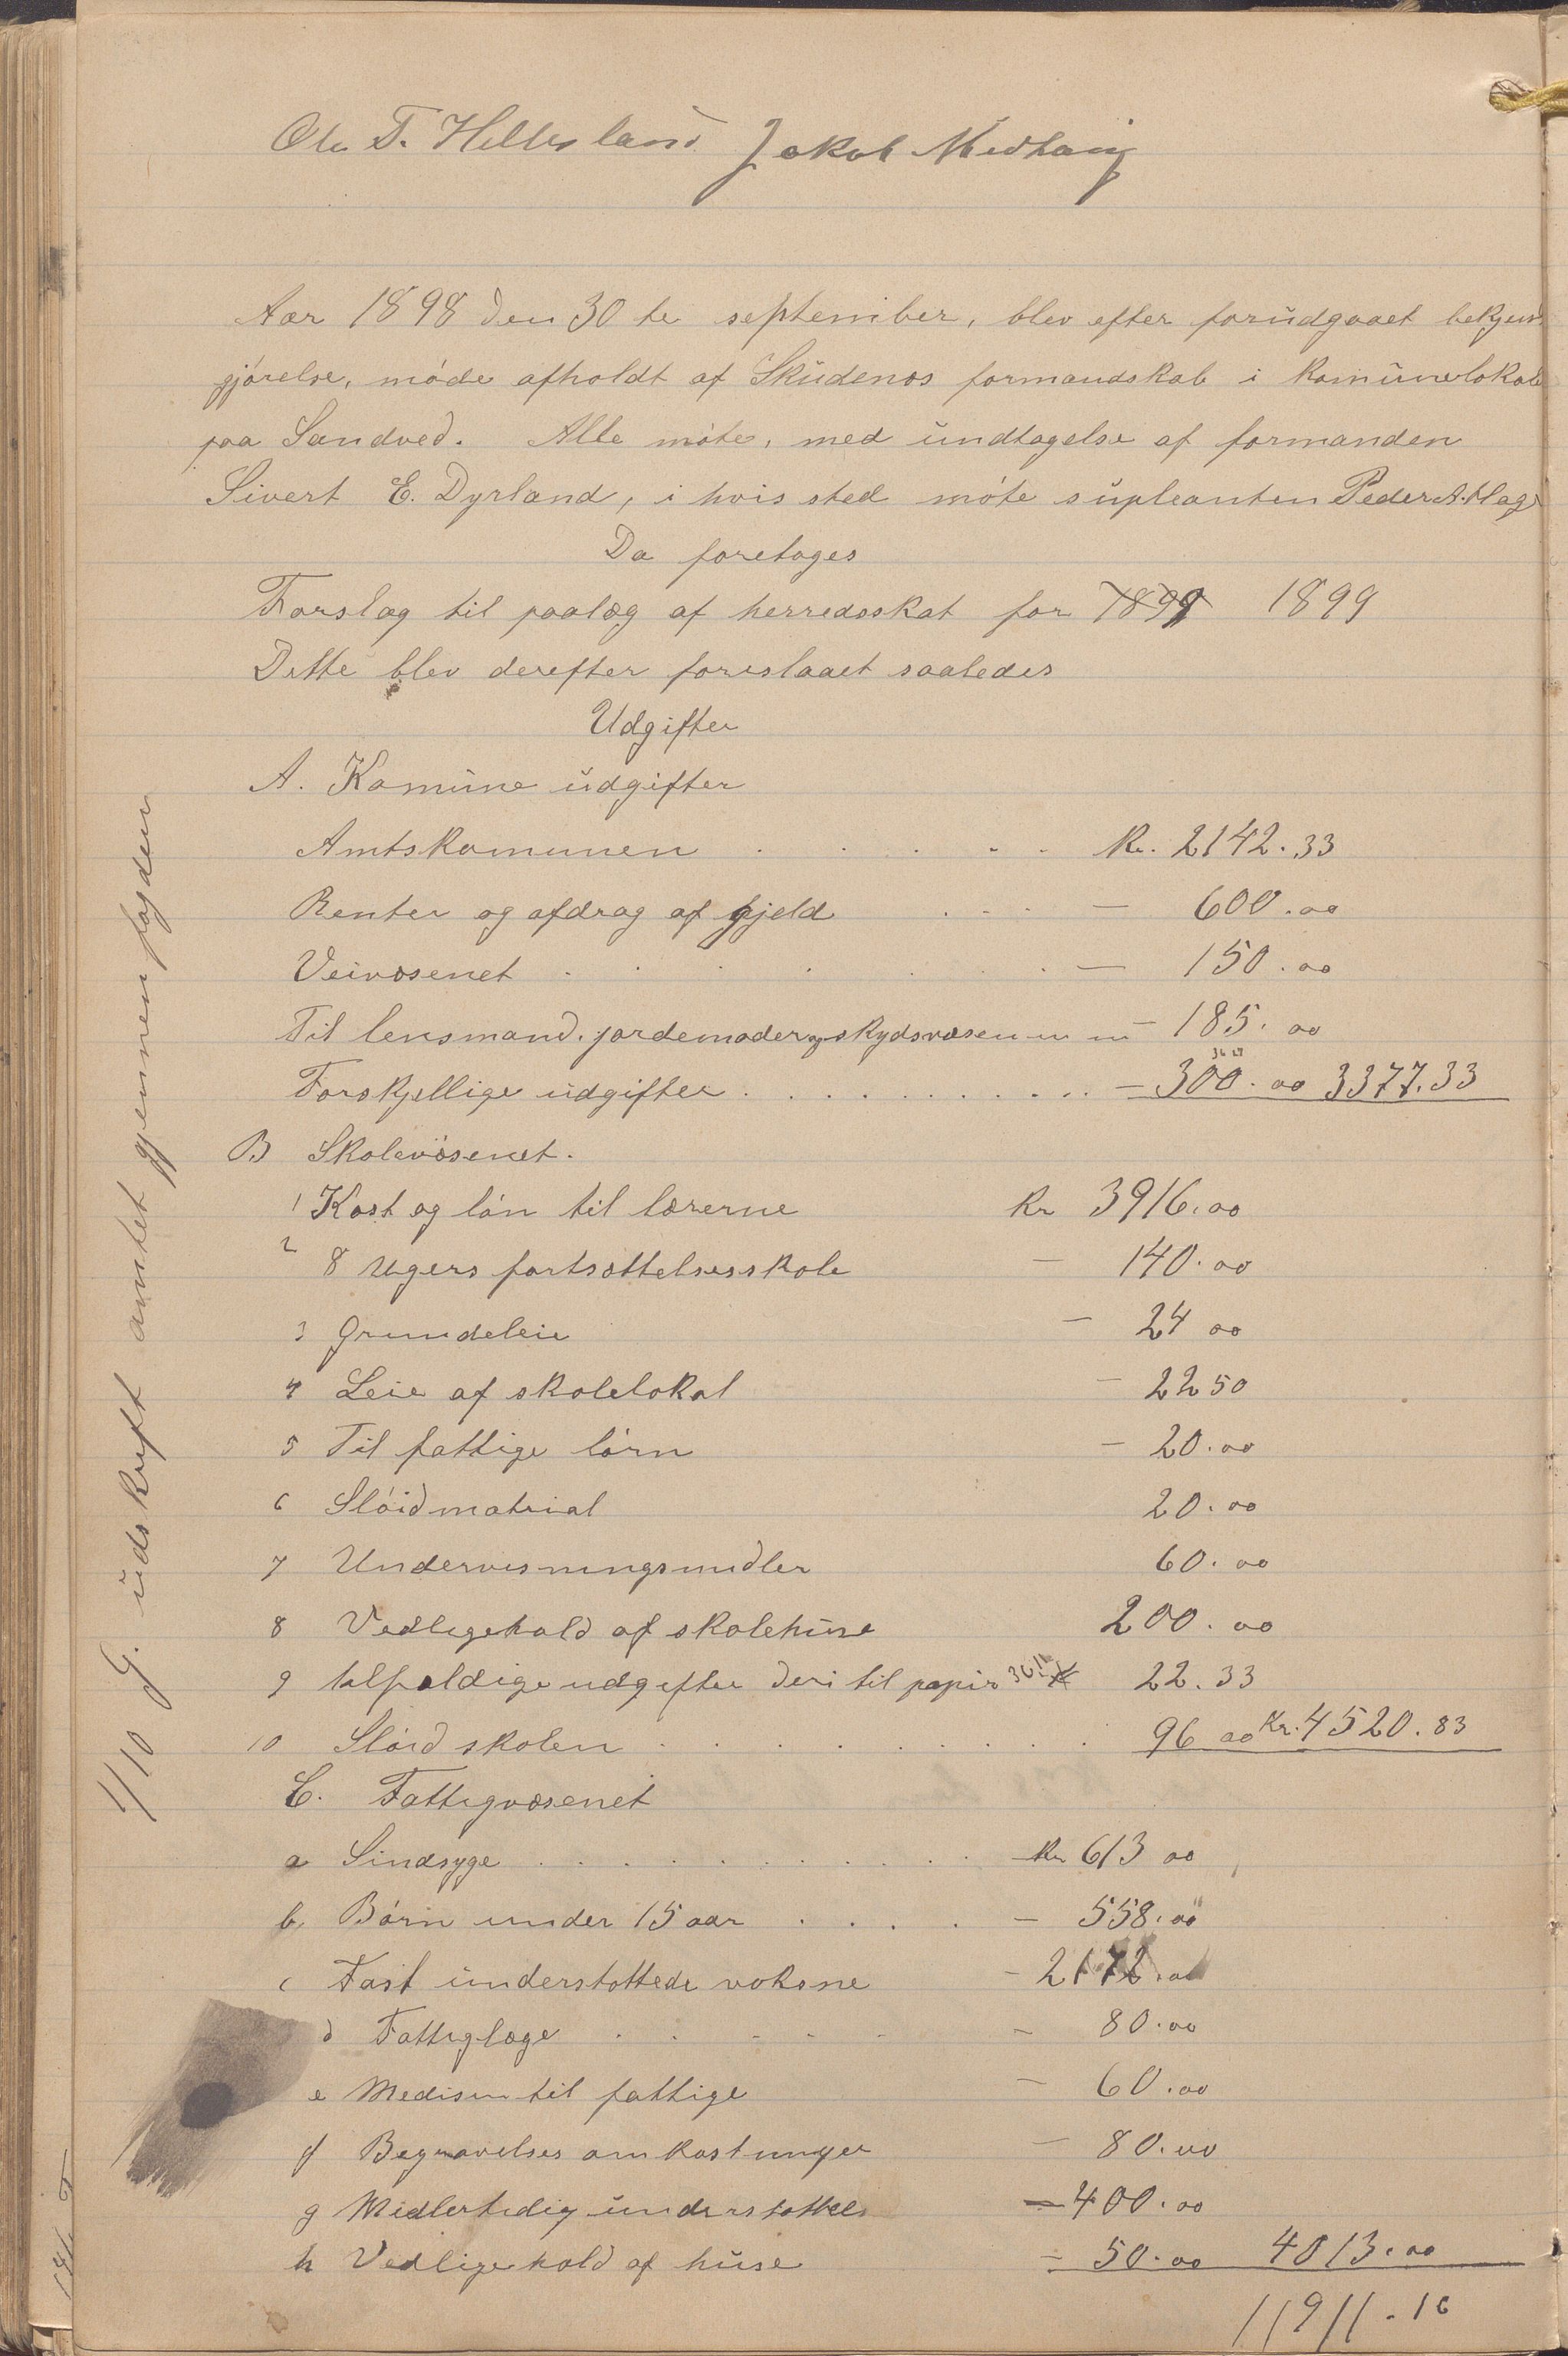 Ole T. Hellesland Jakob Medhaug
Aar 1898 den 30te september, blev efter forudgaaet bekjend
gjørelse, møde afholdt af Skudenæs formandskab i komunelokale
paa Sandved. Alle møte, med undtagelse af formanden
Sivert E. Dyrland, i hvis sted møte supleanten Peder A. Hage
Da foretages
Forslag til paalæg af herredsskat for 1899 1899
Dette blev derefter foreslaaet saaledes
Udgifter
A. Komune udgifter
Amtskomunen . . . . . Kr. 2142.33
Renter og afdrag af gjeld . . . — 600.00
Veivæsenet . . . . . . . — 150.00
Til lensmand. jordemoder og skydsvæsen — 185.00
Forskjellige udgifter . . . . . . . . . . — 300.00 3377.33
B Skolevæsenet.
1 Kost og løn til lærerne Kr 3916.00
2 8 Ugers fortsættelsesskole — 140.00
3 Grundeleie — 24 00
4 Leie af skolelokal — 22 50
5 Til fattige børn — 20.00
6 Sløidmatrial 20.00
7 Undervisningsmidler 60.00
8 Vedligehold af skolehuse 200.00
9 tilfældige udgifter deri til papir 22.33
10 Sløid skolen . . . . . . . . . 96 00 Kr. 4520.83
C. Fattigvæsenet
a Sindsyge . . . . . . . . . . Kr 613 00
b. Børn under 15 aar . . . . — 558.00
c Fast understøttede voksne — 2172.00
d Fattiglæge . . . . . — 80.00
e Medisin til fattige — 60.00
f Begravelses omkostninger — 80.00
g Midlertidig understøttels — 400.00
h Vedligehold af huse — 50.00 4013.00
11911.16
4/10 G. udskrift amtet gjennem fogden